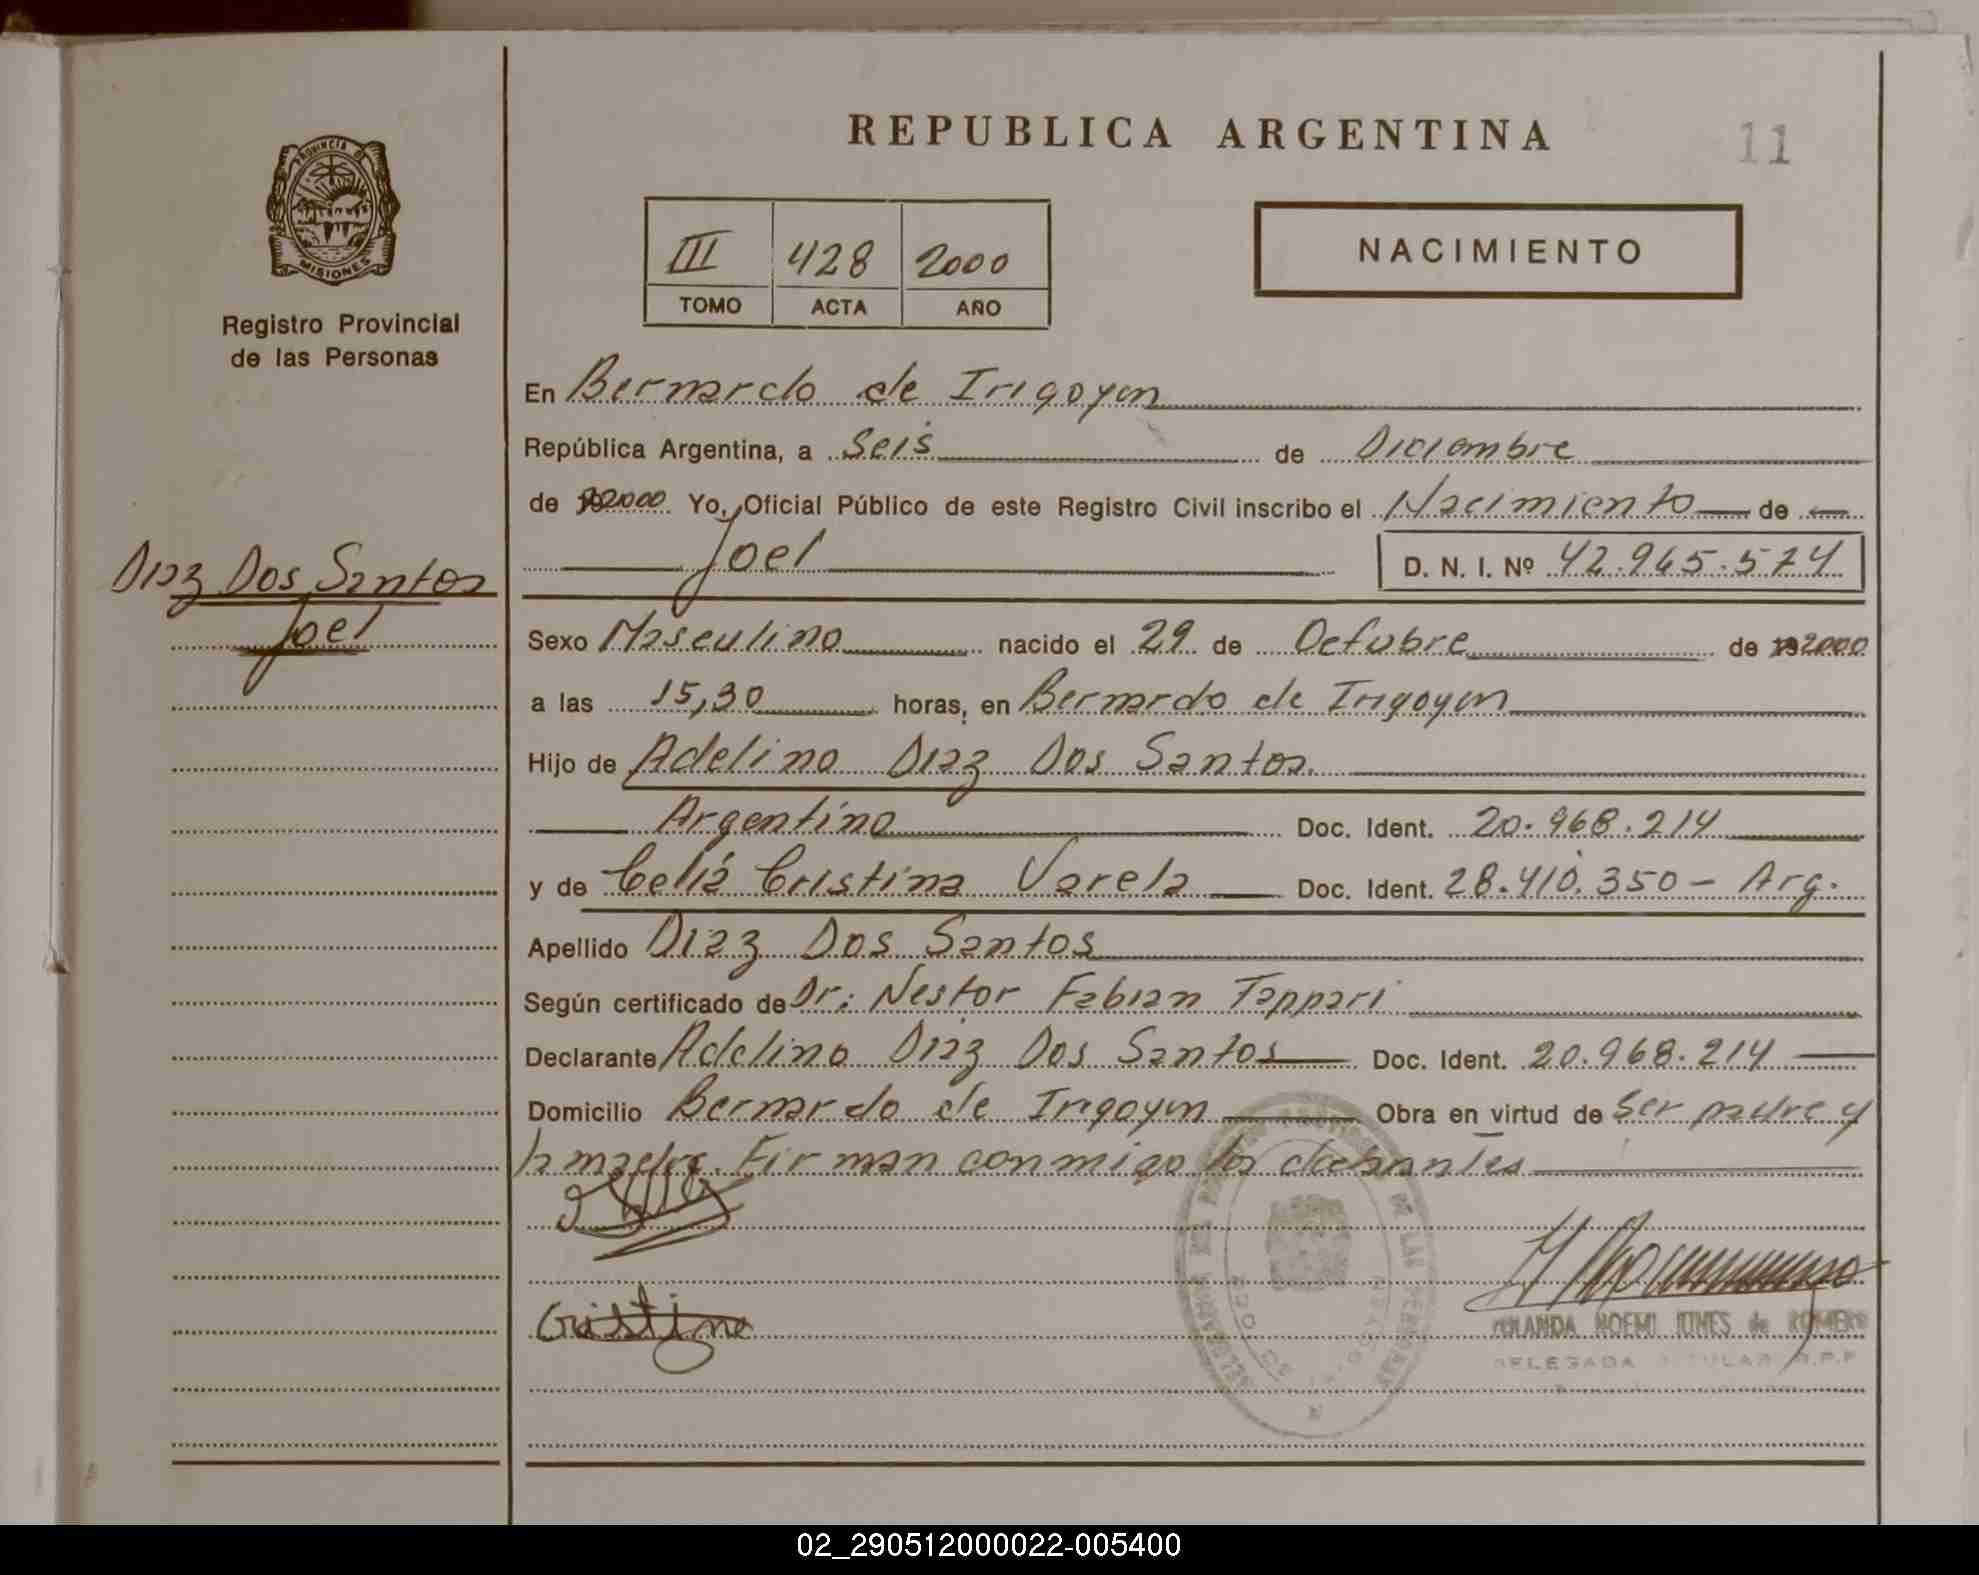 REPUBLICA ARGENTINA
11
PROVINCIA DE
MISIONES
Registro Provincial
de las Personas
III 428 2000
TOMO ACTA AÑO
NACIMIENTO
En Bernardo de Irigoyen
República Argentina, a Seis de Diciembre
de 2000 Yo, Oficial Público de este Registro Civil inscribo el Nacimiento de
Joel D. N. I. Nº 42.965.574
Diaz Dos Santos
Joel
Sexo Masculino nacido el 29 de Octubre de 2000
a las 15,30 horas, en Bernardo de Irigoyen
Hijo de Adelino Diaz Dos Santos.
Argentino Doc. Ident. 20.968.214
y de Celia Cristina Varela Doc. Ident. 28.410.350 - Arg.
Apellido Diaz Dos Santos
Según certificado de Dr: Nestor Fabian Tappari
Declarante Adelino Diaz Dos Santos Doc. Ident. 20.968.214
Domicilio Bernardo de Irigoyen Obra en virtud de Ser padre y
la madre. Firman conmigo los declarantes
Cristina
NOEMI de ROMERO
DELEGADA TITULAR R.P.P.
02_290512000022-005400